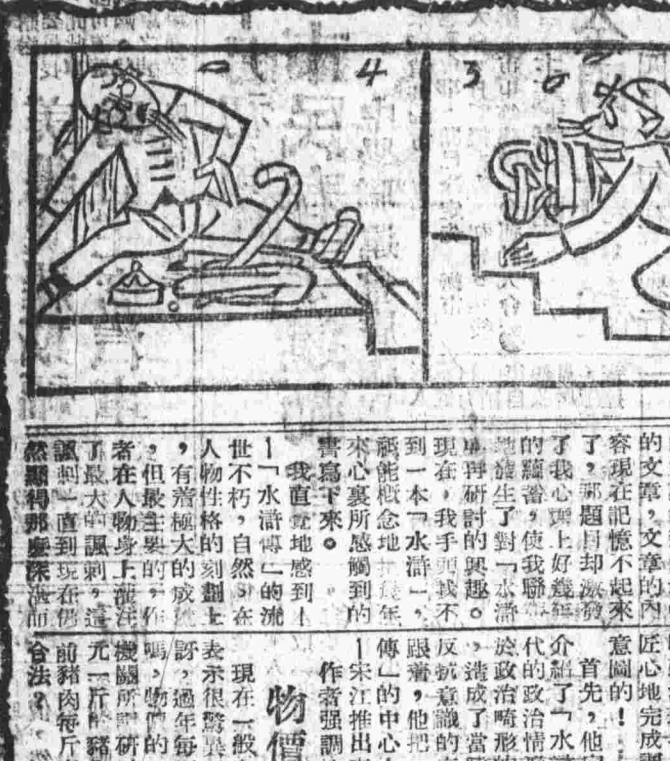 4
3
的文章，文章的內
容現在記憶不起來
了，那題目却激發
了我心裏上好幾年
的蘊蓄，使我聯
地發生了對「水滸
再研討的興趣。
現在，我手頭找不
到一本「水滸」，
祇能概念地 幾年
來心裏所感觸到的
書寫下來。
我直覺地感到
—「水滸傳」的流
世不朽，自然 在
人物性格的刻劃上
，有着極大的成
，但最主要的，作
者在人物身上灌注
了最大的諷刺，這
諷刺一直到現在仍
然顯得那麽深 而
匠心地完成
意圖的！
首先，他
介紹了「水
代的政治情
於政治畸形
，造成了當
反抗意識的
跟著，他把
傳」的中心
—宋江推出
作者强調
物價
現在一般
表示很驚
訝，過年每
嗎，物價的
機關所 研
元一斤 豬
前豬肉每斤
合法？